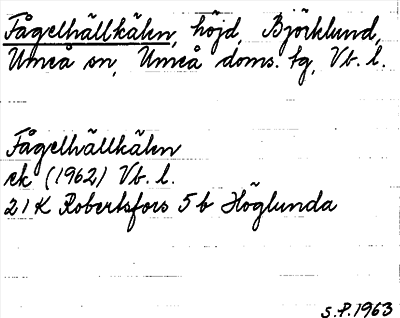 Fågelhällkälen, höjd, Björklund,
Umeå sn, Umeå doms. tg, Vb. l.
Fågelhällkälen
ek (1962) Vb. l.
21 K Robertsfors 5 b Höglunda
S.P. 1963